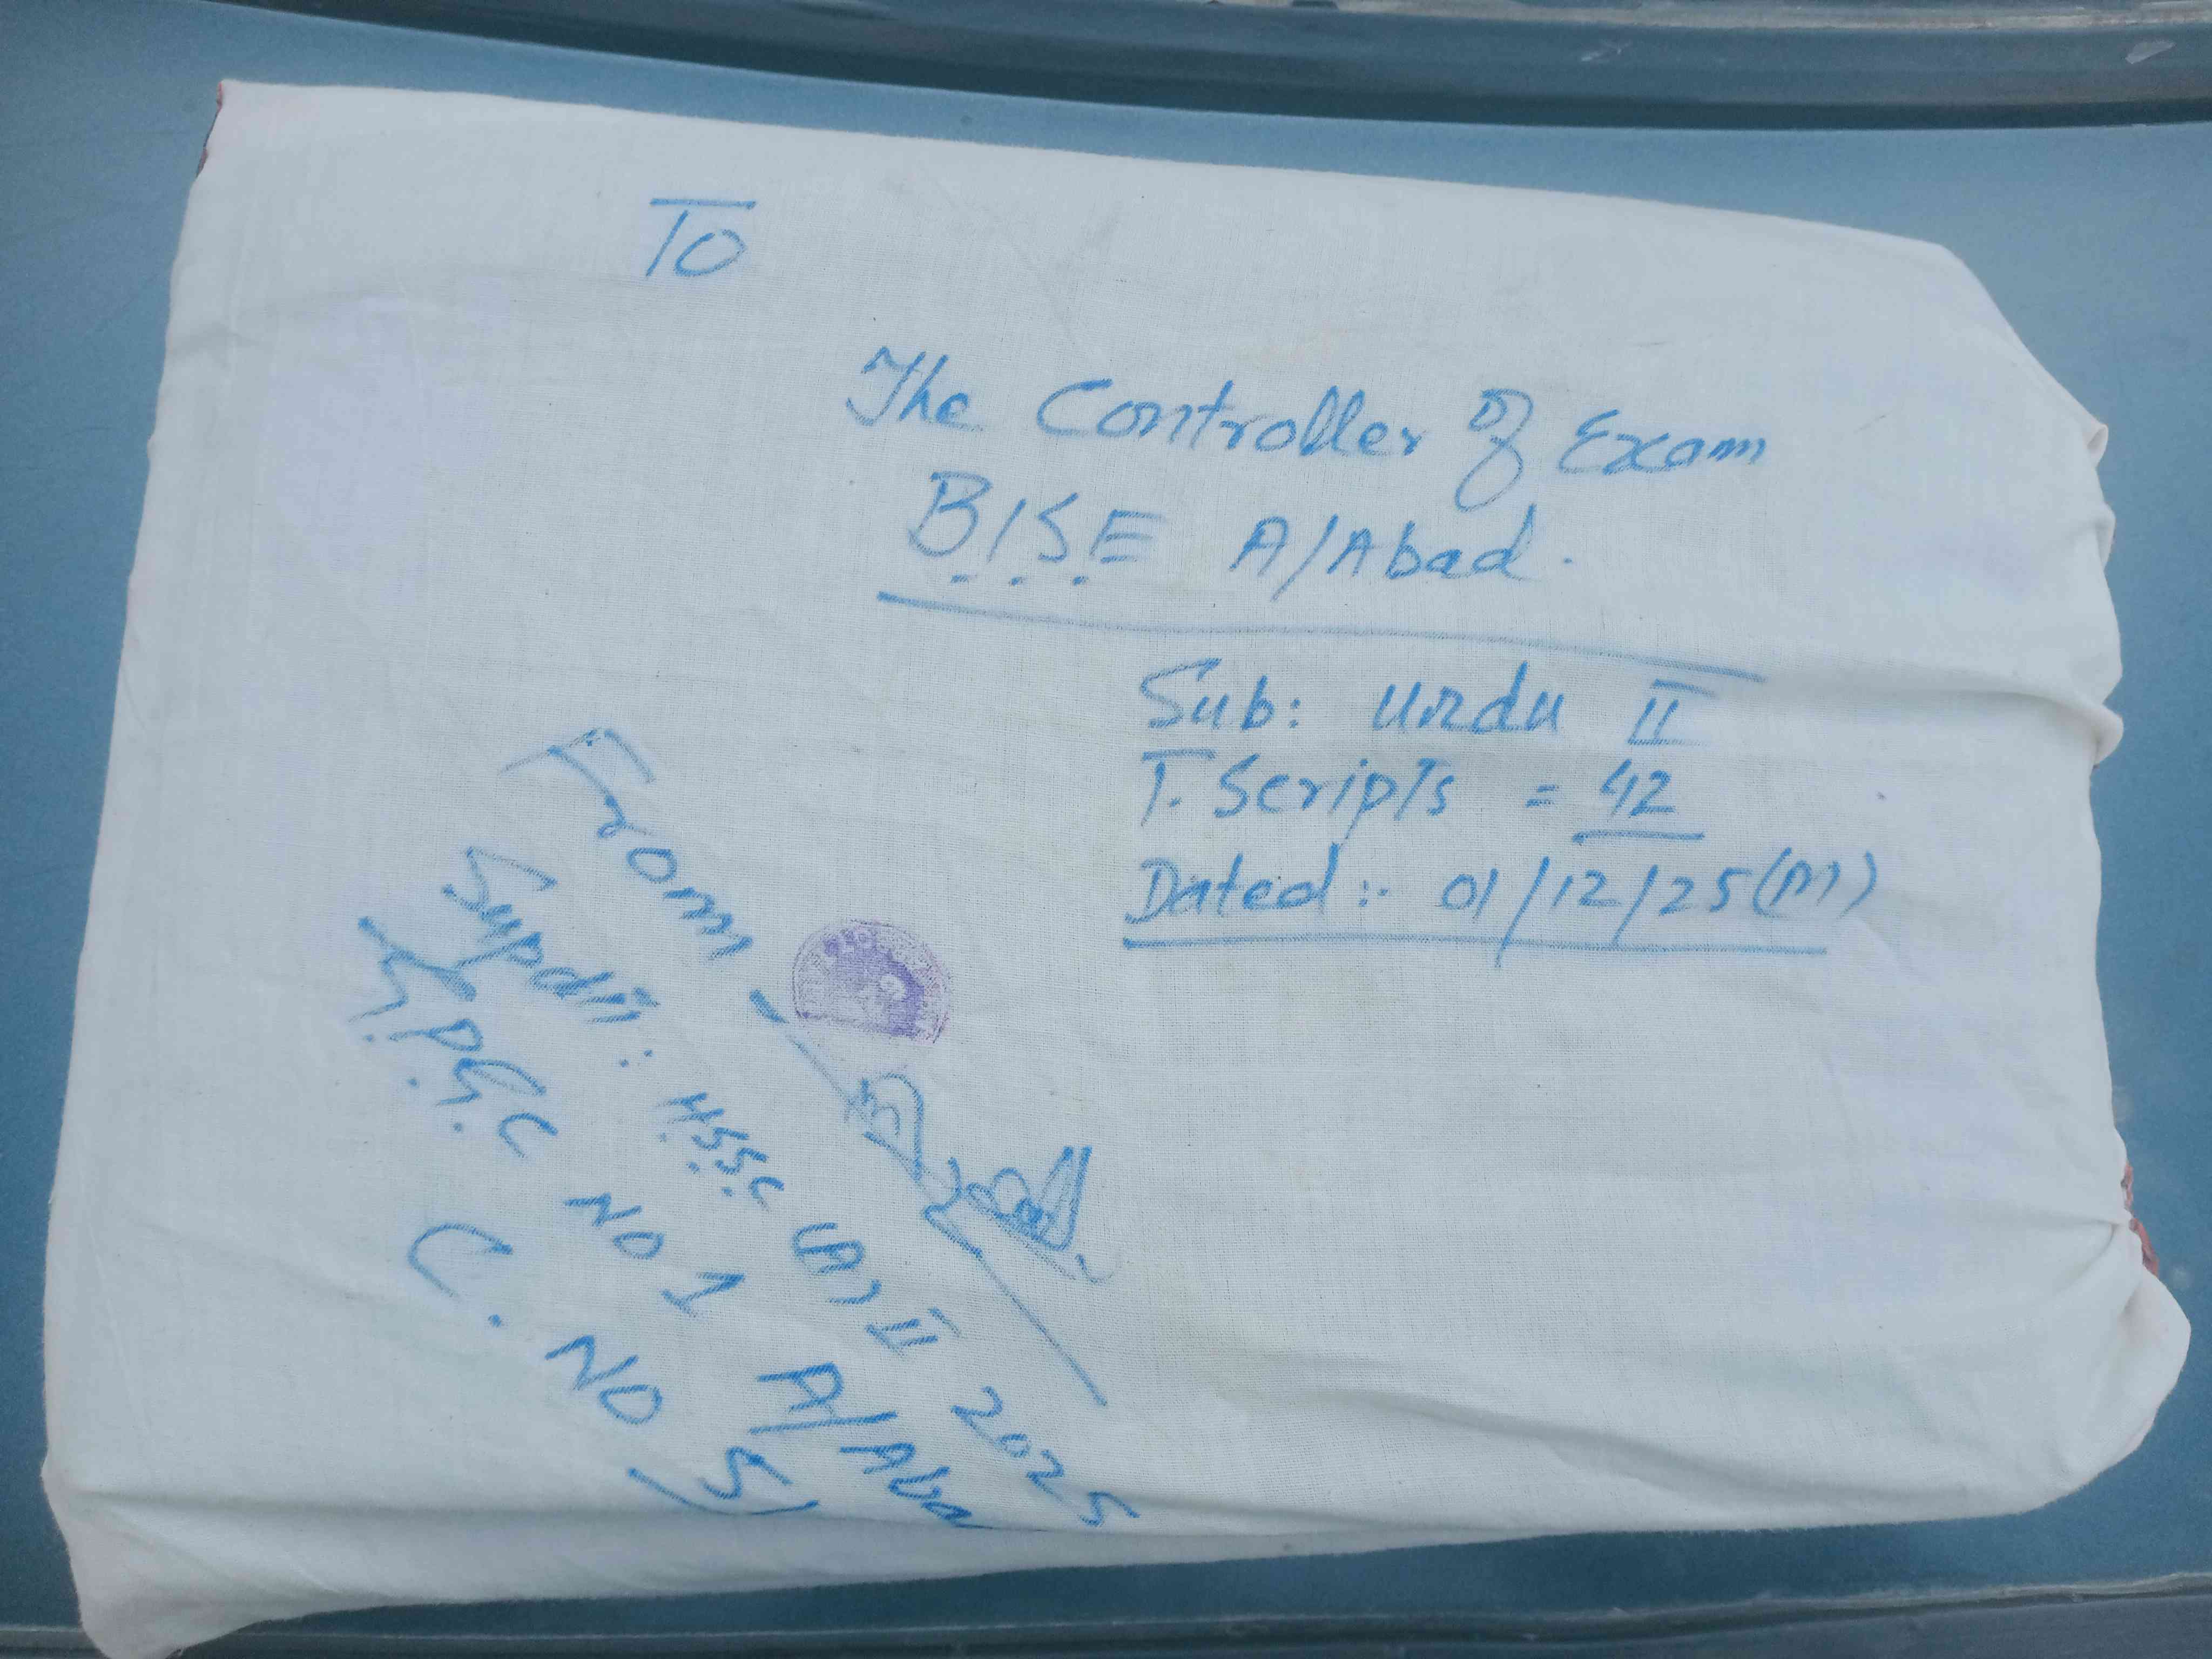 To
The Controller of Exam
B.I.S.E A/Abad.
Sub: Urdu II
T. Scripts = 42
Dated:- 01/12/25(M)
From
Supdtt: H.S.S.C (A) II 2025
NO 1 A/Aba
C. NO 51